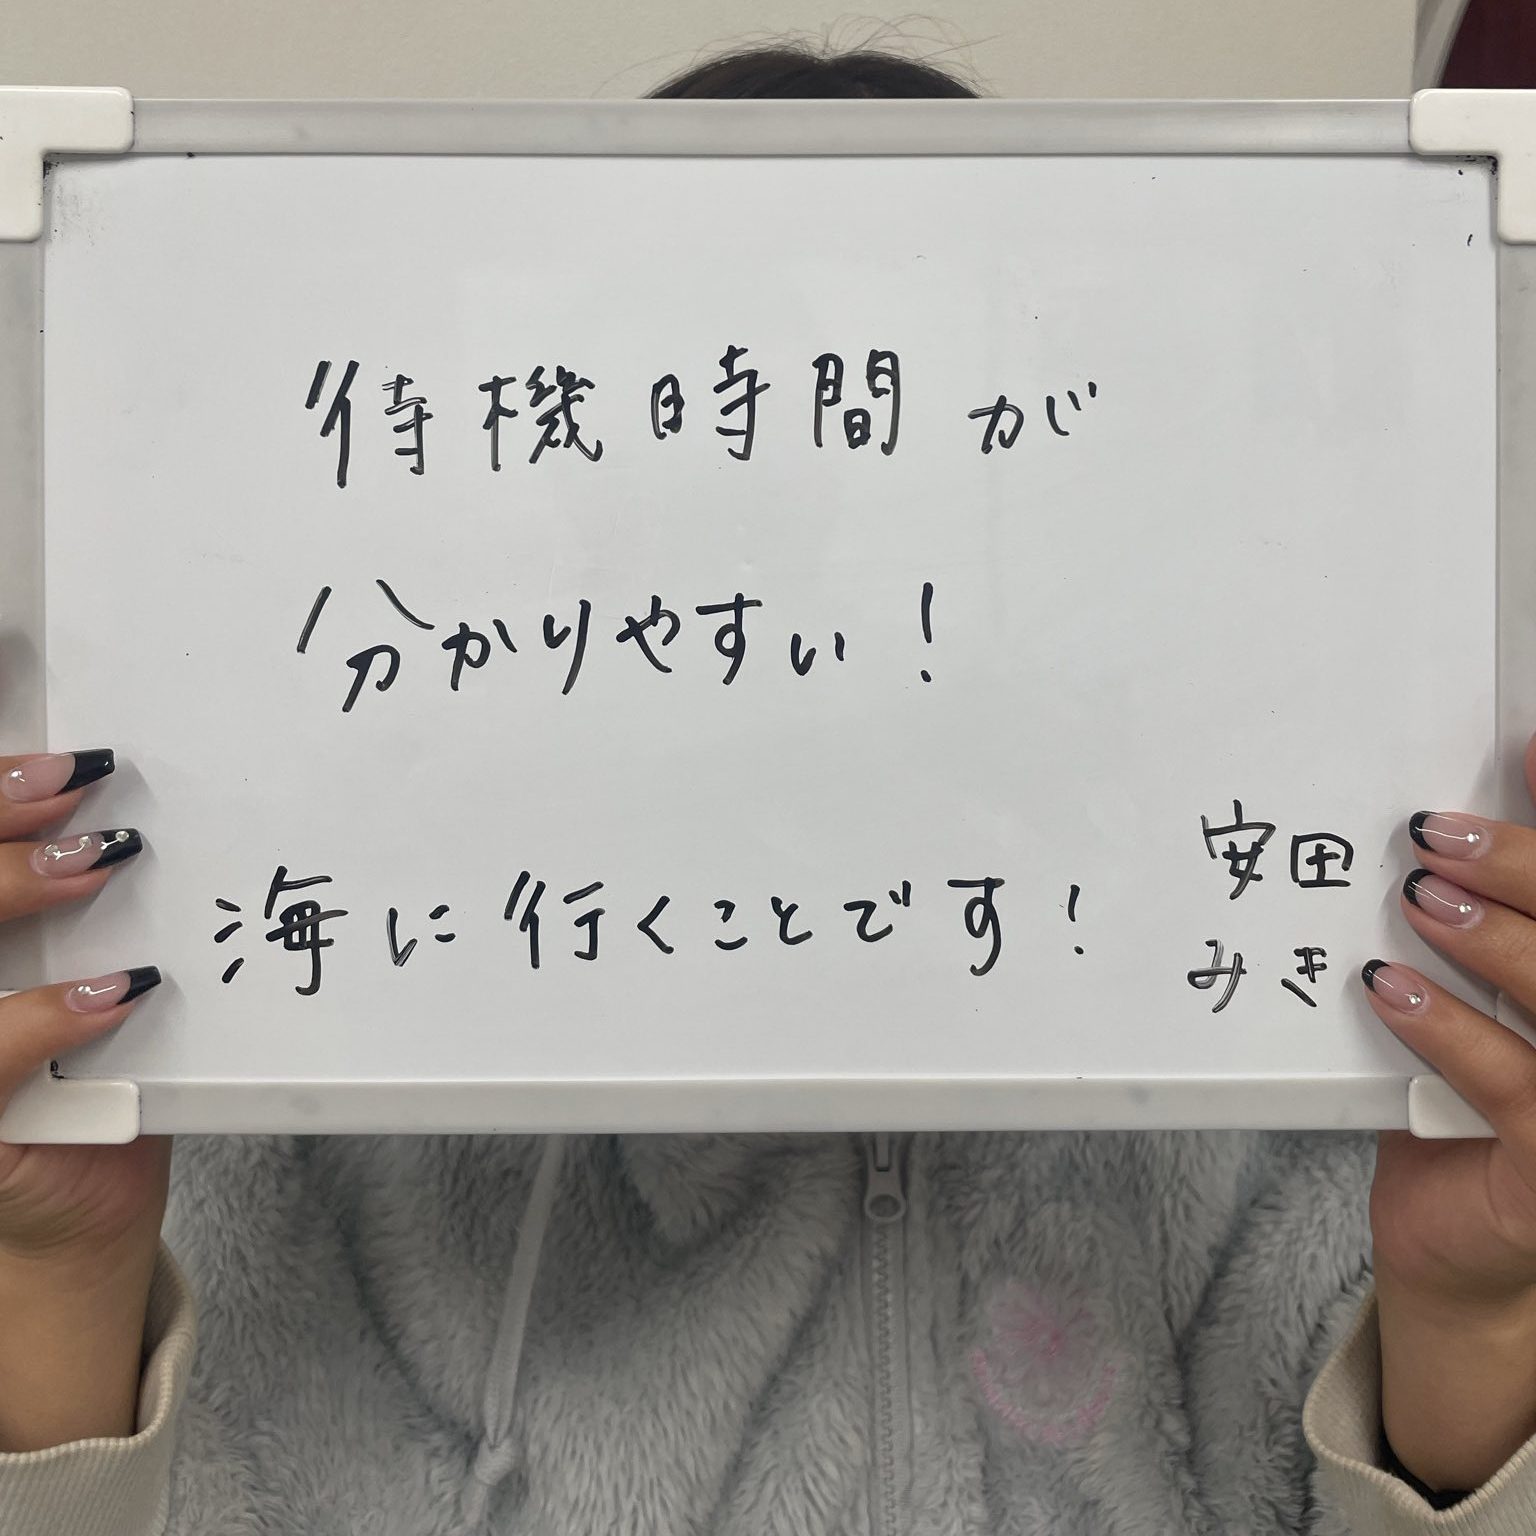 待機時間が
分かりやすい!
海に行くことです!
安田
みき